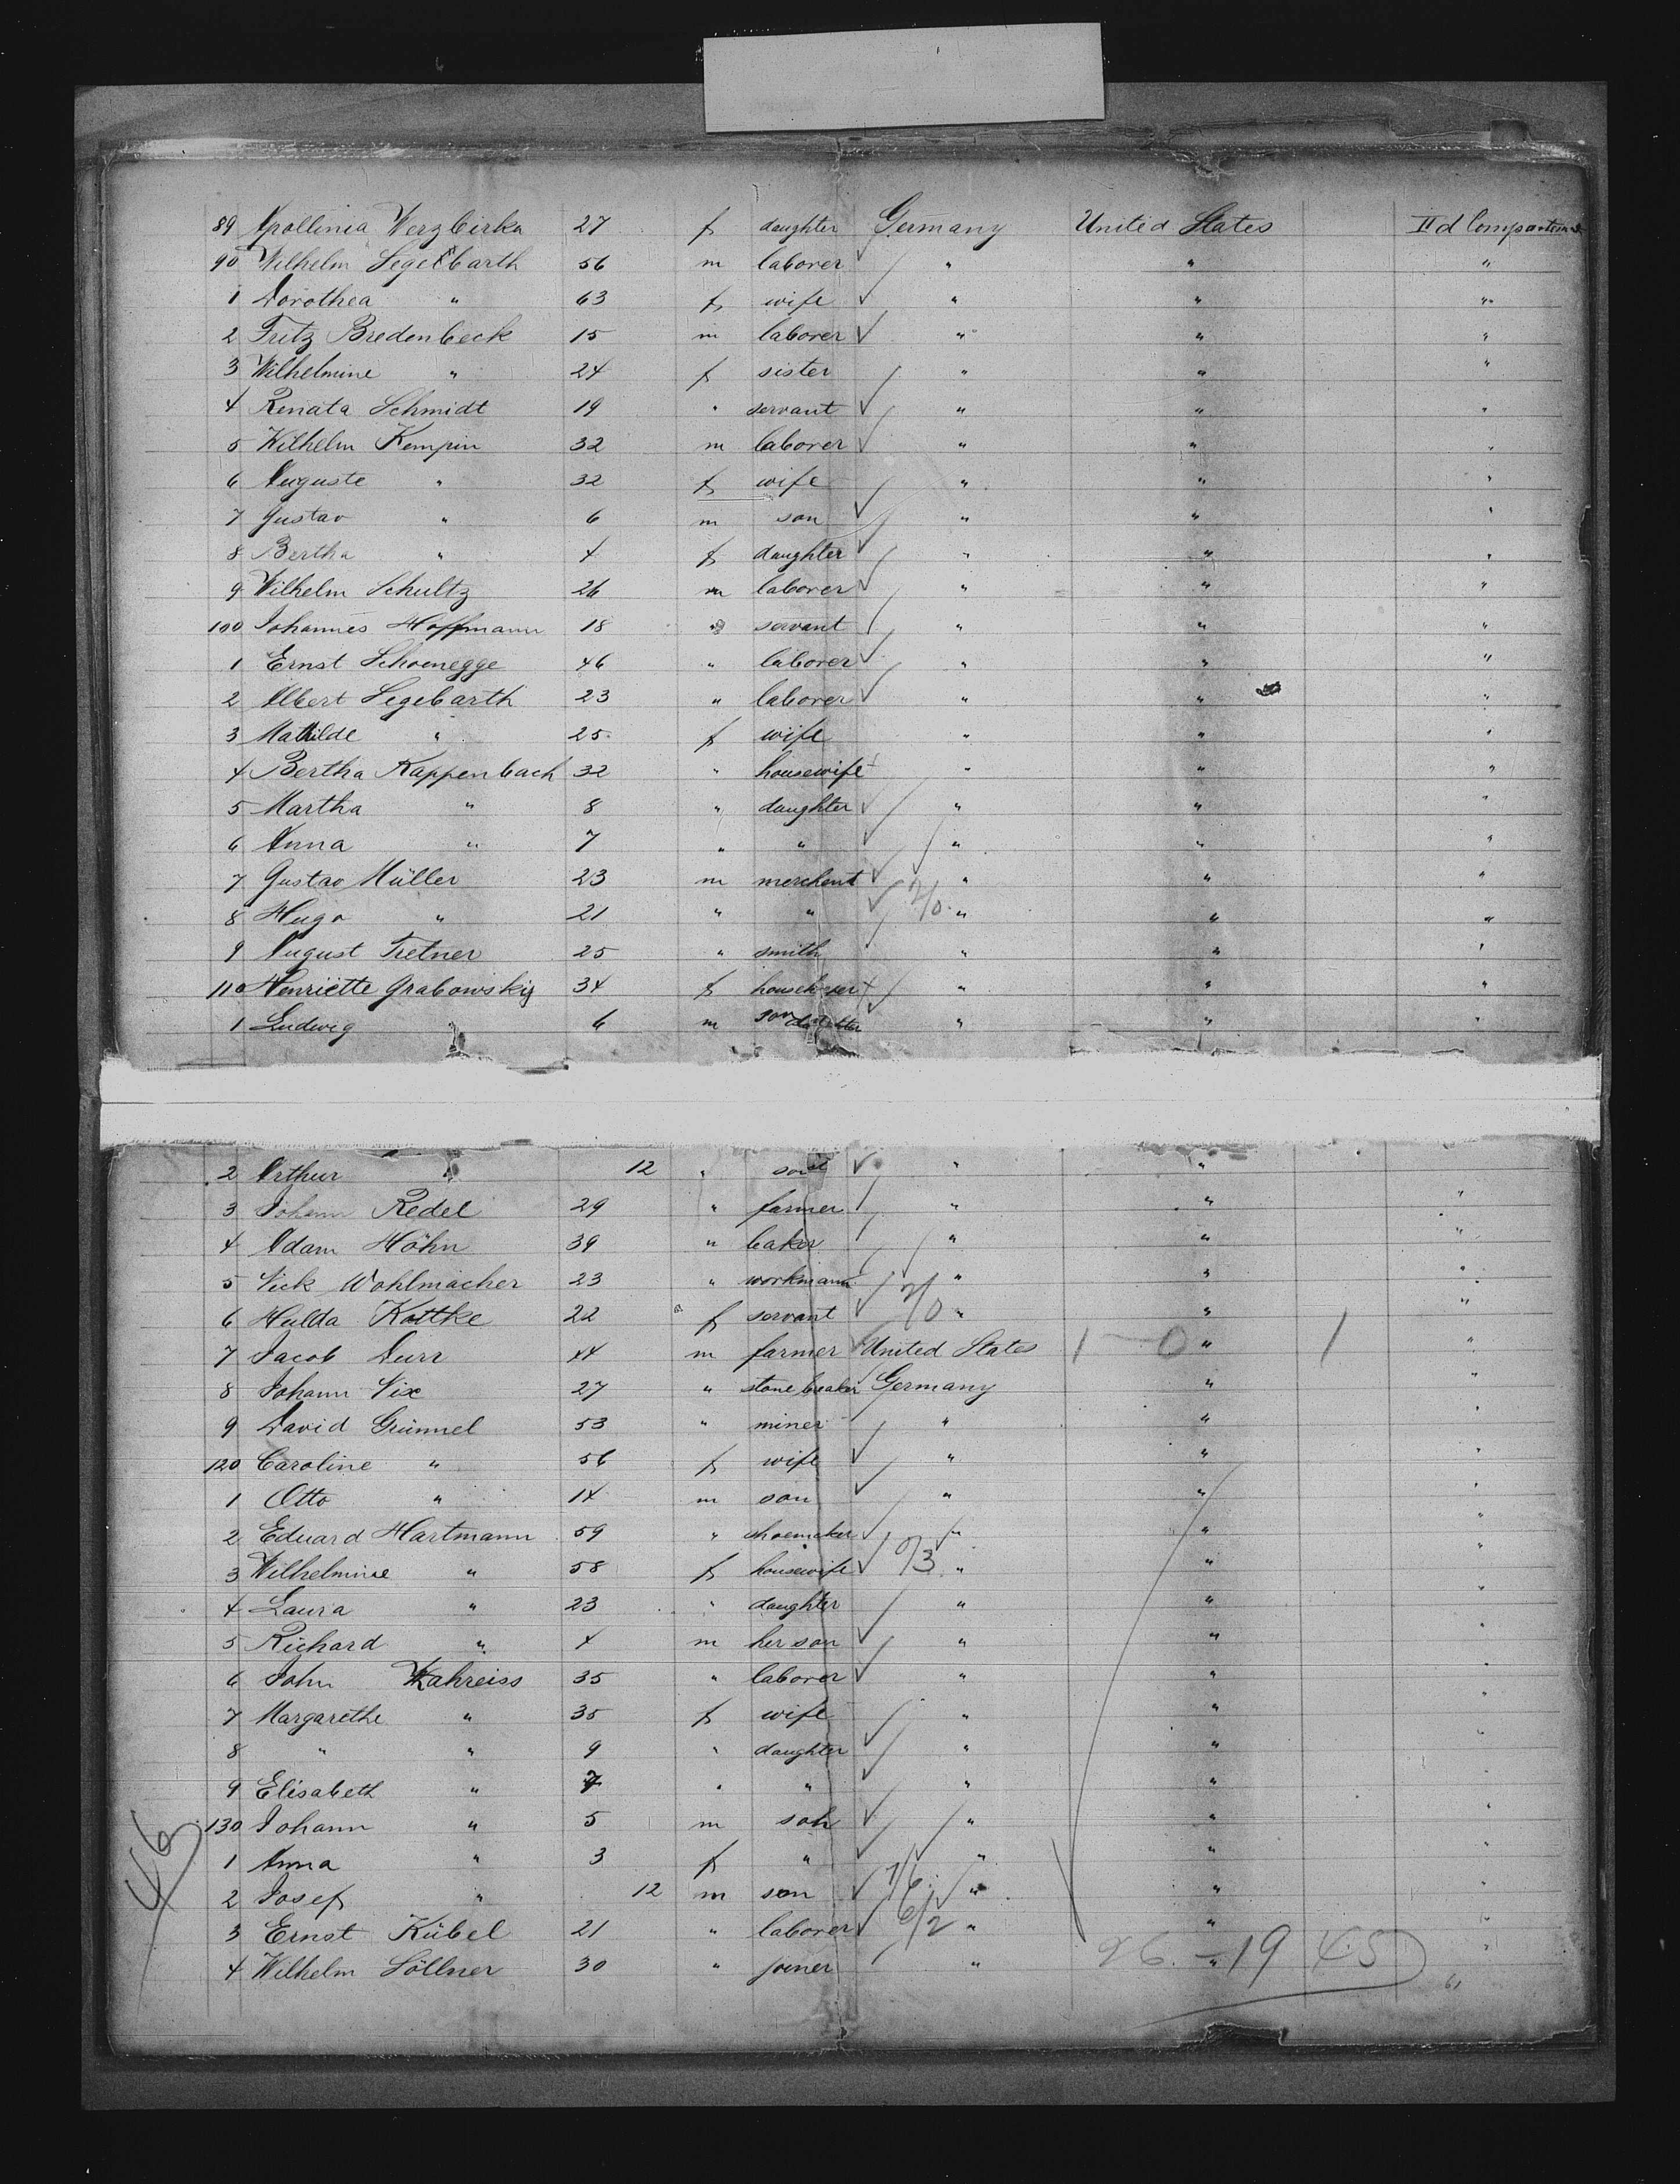 89 Apollinia Werzbirka 27 f daughter Germany United States IId Compartement
90 Wilhelm Segebarth 56 m laborer " " "
1 Dorothea " 63 f wife " " "
2 Fritz Bredenbeck 15 m laborer " " "
3 Wilhelmine " 24 f sister " " "
4 Renata Schmidt 19 " servant " " "
5 Wilhelm Kempin 32 m laborer " " "
6 Auguste " 32 f wife " " "
7 Gustav " 6 m son " " "
8 Bertha " 4 f daughter " " "
9 Wilhelm Schultz 26 m laborer " " "
100 Johannes Hoffmann 18 " servant " " "
1 Ernst Schoenegge 46 " laborer " " "
2 Albert Segebarth 23 " laborer " " "
3 Mathilde " 25 f wife " " "
4 Bertha Kappenbach 32 " housewife " " "
5 Martha " 8 " daughter " " "
6 Anna " 7 " " " " "
7 Gustav Müller 23 m merchent " " "
8 Hugo " 21 " " 2/0 " " "
9 August Tretner 25 " smith " " "
110 Henriette Grabowsky 34 f " " "
1 Ludwig " 6 m son " " "
2 Arthur " 12 " son " "
3 Johann Redel 29 " farmer " " "
4 Adam Höhn 39 " baker " " "
5 Nick Wohlmacher 23 " workmann " " "
6 Hulda Kottke 22 f servant 2/0 " " "
7 Jacob Durr 44 m farmer United States 1 - 0 " 1 "
8 Johann Nix 27 " stone breaker Germany " "
9 David Grünnel 53 " miner " " "
120 Caroline " 56 f wife " " "
1 Otto " 14 m son " " "
2 Eduard Hartmann 59 " shoemaker " " "
3 Wilhelmine " 58 f housewife 0/3 " " "
4 Laura " 23 " daughter " " "
5 Richard " 4 m her son " " "
6 John Kahreiss 35 " laborer " " "
7 Margarethe " 35 f wife " " "
8 " " 9 " daughter " " "
9 Elisabeth " 7 " " " " "
130 Johann " 5 m son " " "
1 Anna " 3 f " " " "
2 Josef " 12 m son 1/6 " " "
3 Ernst Kübel 21 " laborer 6/2 " " "
4 Wilhelm Söllner 30 " joiner " 26 - 19 45 "
46
61